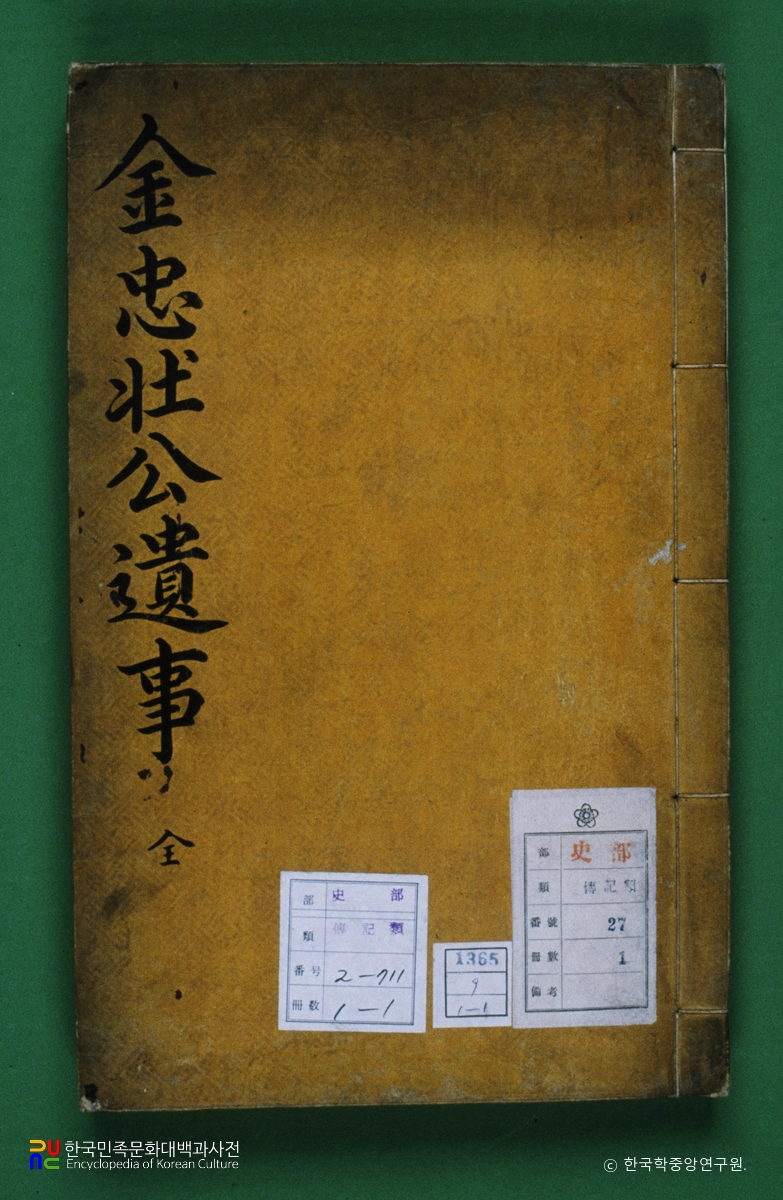 金忠壯公遺事
全
部 史部
類 傳記類
番号 2-711
冊数 1-1
1365
9
1-1
部 史部
類 傳記類
番號 27
冊數 1
備考
한국민족문화대백과사전
Encyclopedia of Korean Culture
© 한국학중앙연구원.